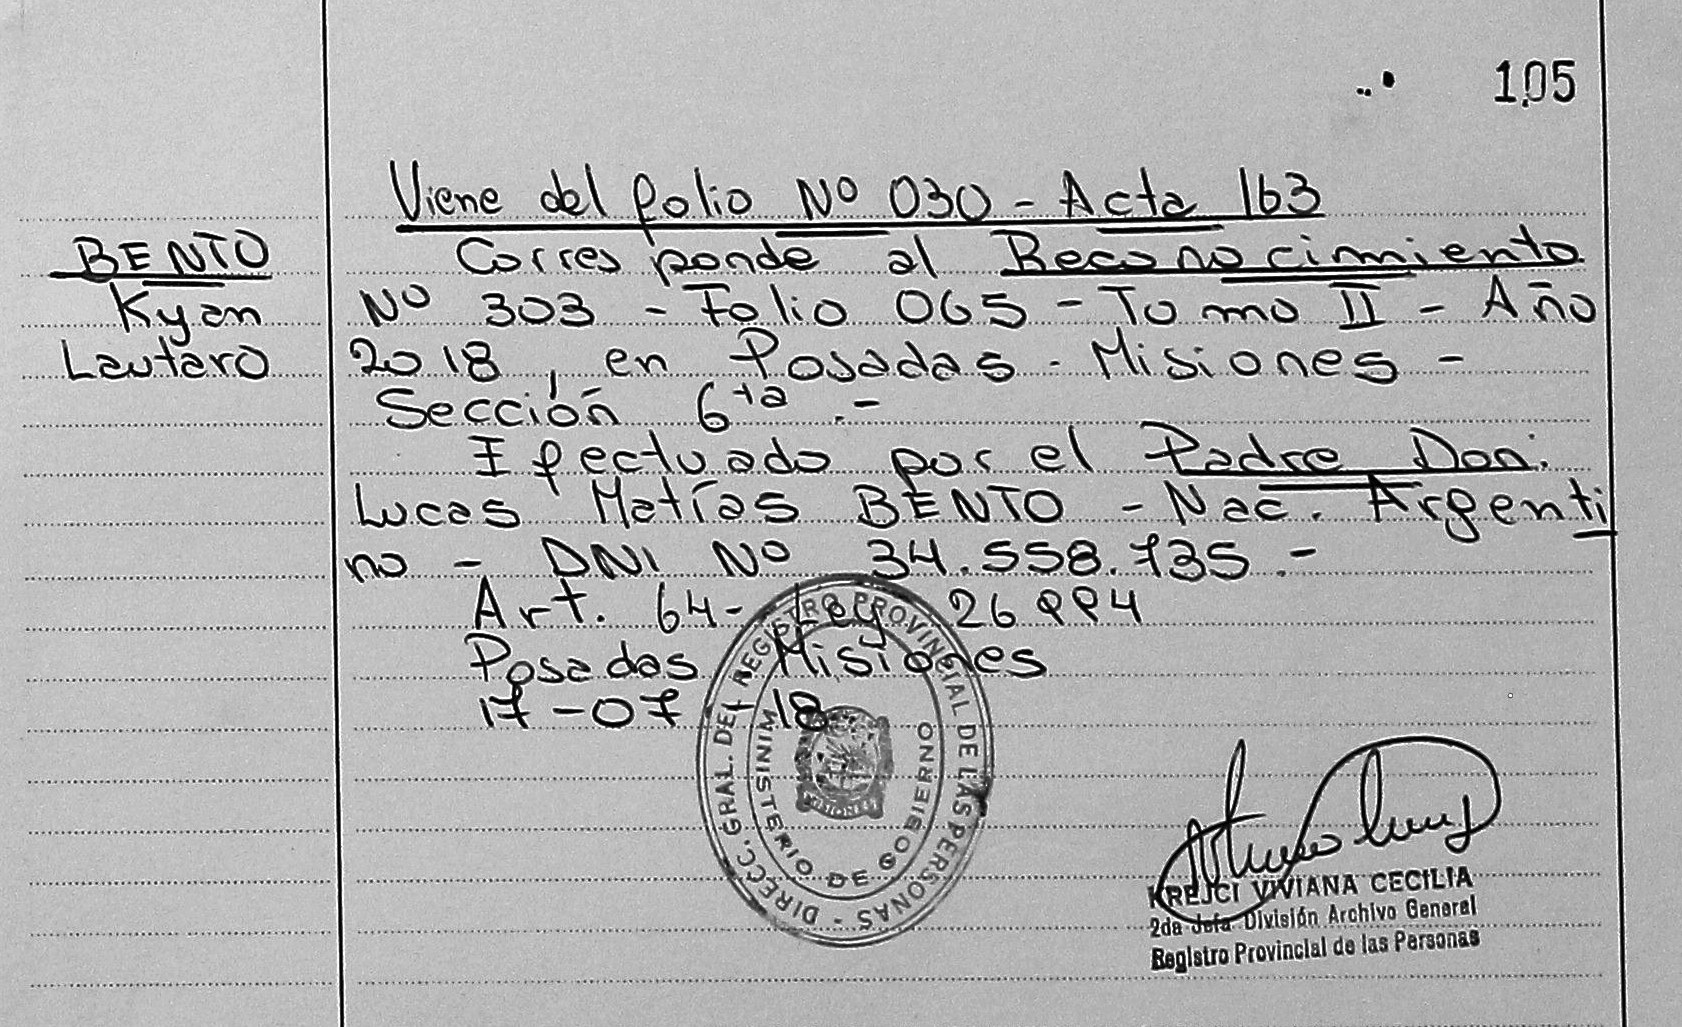 105
Viene del folio Nº 030 - Acta 163
BENTO
Kyan
Lautaro
Corresponde al Reconocimiento
Nº 303 - Folio 065 - Tomo II - Año
2018, en Posadas - Misiones -
Sección 6ta .-
Efectuado por el Padre Don.
Lucas Matías BENTO - Nac. Argenti
no - DNI Nº 34.558.735.-
Art. 64- Ley 26994
Posadas Misiones
17-07-18
DIRECC. GRAL. DEL REGISTRO PROVINCIAL DE LAS PERSONAS -
MINISTERIO DE GOBIERNO
MISIONES
KREJCI VIVIANA CECILIA
2da Jefa División Archivo General
Registro Provincial de las Personas